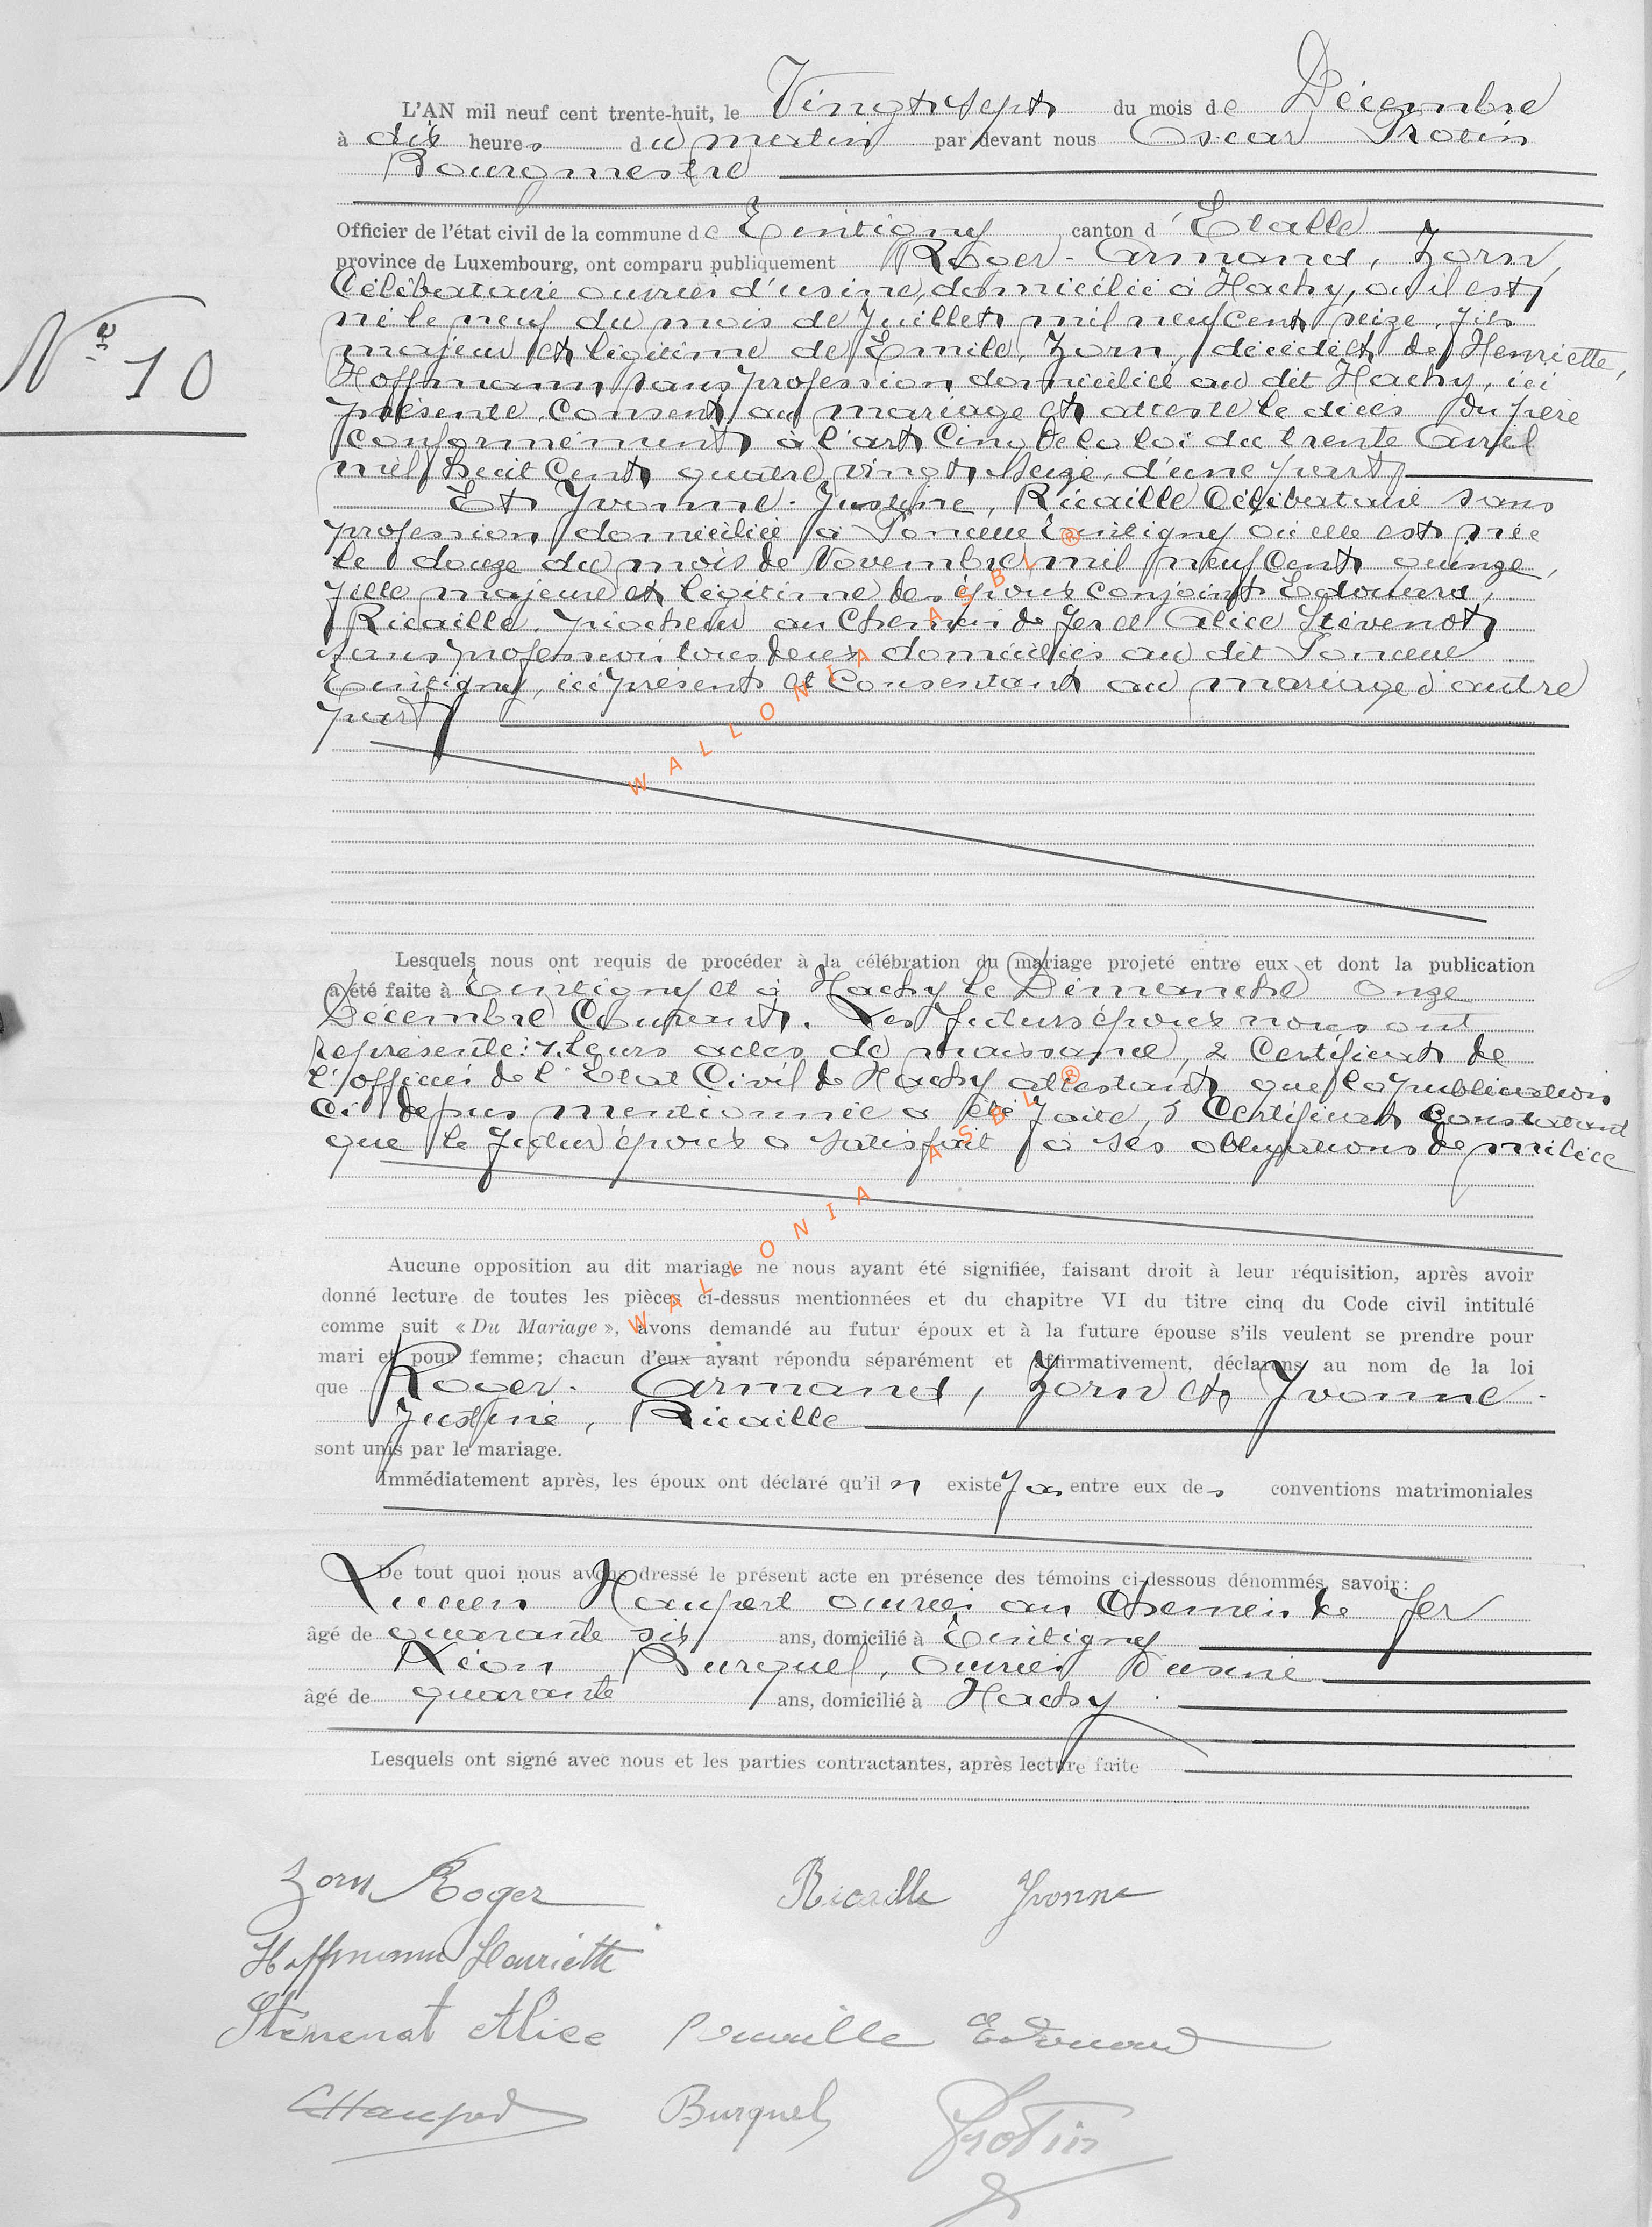 L'AN mil neuf cent trente-huit, le Vingt sept du mois de Décembre
à dix heures du matin par devant nous Oscar Protin
Bourgmestre
Officier de l'état civil de la commune de Tintigny canton d'Etalle
province de Luxembourg, ont comparu publiquement Roger-Armand, Zorn,
Célibataire ouvrier d'usine, domicilié à Hachy, où il est
né le neuf du mois de Juillet mil neuf cent seize, fils
majeur et légitime de Emile, Zorn, décédé et de Henriette,
Hoffmann sans profession domiciliée au dit Hachy, ici
présente, Consent au mariage et atteste le décès du père
conformément à l'art Cinq de la loi du trente Avril
mil huit Cent quatre vingt Seize, d'une part,
Et Yvonne-Justine, Ricaille Célibataire sans
profession domiciliée à Poncelle Tintigny où elle est née
le douze du mois de Novembre mil neuf Cent quinze,
fille majeure et légitime des époux conjoints Edouard,
Ricaille, piocheur au Chemin de fer et Alice Stévenot,
sans profession tous deux domiciliés au dit Poncelle
Tintigny, ici présents et Consentant au mariage d'autre
part
Nº 10
Lesquels nous ont requis de procéder à la célébration du mariage projeté entre eux et dont la publication
a été faite à Tintigny et à Hachy le Dimanche onze
Décembre Courant. Les futurs époux nous ont
représenté: 1. leurs actes de naissance, 2 Certificat de
l'officier de l'Etat Civil de Hachy attestant que la publication
Ci depus mentionnée a été faite, 3 Certificat Constatant
que le futur époux a satisfait à ses obligations de milice
Aucune opposition au dit mariage ne nous ayant été signifiée, faisant droit à leur réquisition, après avoir
donné lecture de toutes les pièces ci-dessus mentionnées et du chapitre VI du titre cinq du Code civil intitulé
comme suit « Du Mariage », avons demandé au futur époux et à la future épouse s'ils veulent se prendre pour
mari et pour femme; chacun d'eux ayant répondu séparément et affirmativement, déclarons au nom de la loi
que Roger-Armand, Zorn et Yvonne-
Justine, Ricaille
sont unis par le mariage.
Immédiatement après, les époux ont déclaré qu'il n existe pas entre eux des conventions matrimoniales
De tout quoi nous avons dressé le présent acte en présence des témoins ci-dessous dénommés, savoir:
Lucien Haupert ouvrier au Chemin de fer
âgé de quarante six ans, domicilié à Tintigny
Léon Burquel, Ouvrier d'usine
âgé de quarante ans, domicilié à Hachy
Lesquels ont signé avec nous et les parties contractantes, après lecture faite
Zorn Roger Ricaille Yvonne
Hoffmann Henriette
Stévenot Alice Ricaille Edouard
Burquel Protin
WALLONIA ASBL ®
WALLONIA ASBL ®